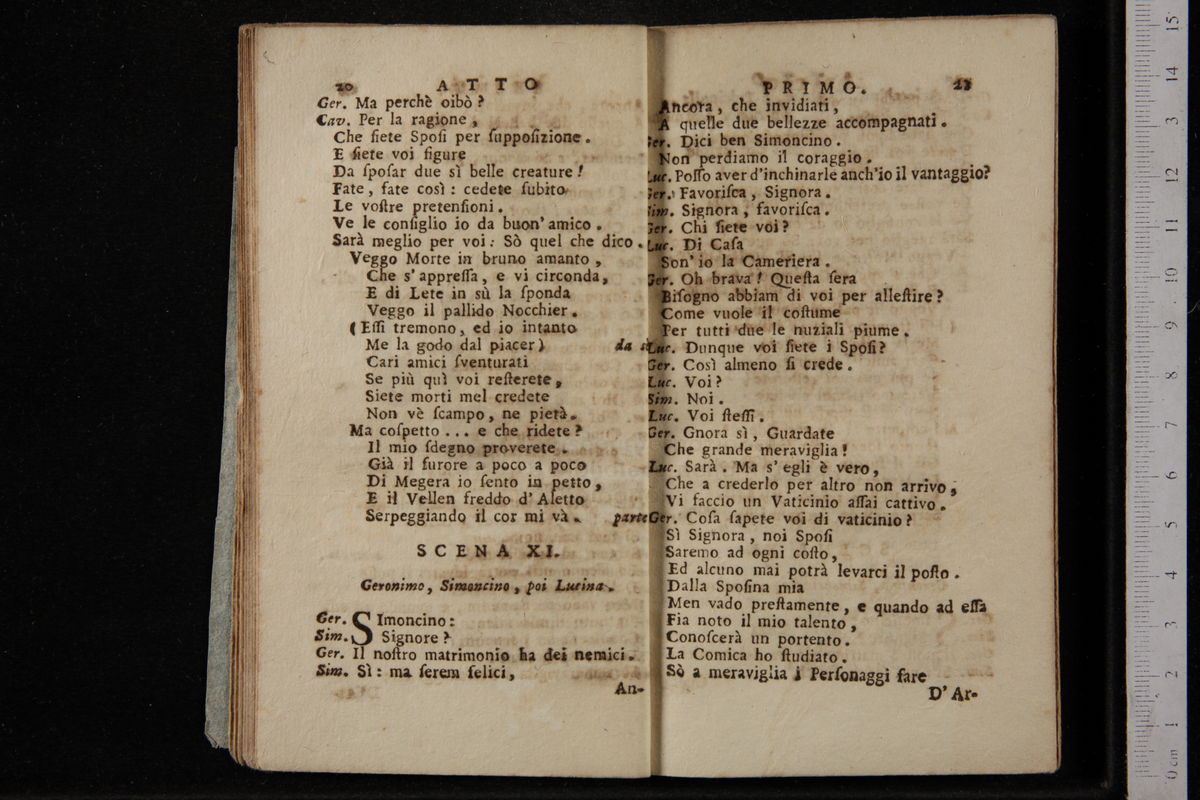 20 ATTO
Ger. Ma perchè oibò?
Cav. Per la ragione,
Che ſiete Spoſi per ſuppoſizione.
E ſiete voi figure
Da ſpoſar due sì belle creature!
Fate, fate così: cedete ſubito
Le voſtre pretenſioni.
Ve le conſiglio io da buon' amico.
Sarà meglio per voi: Sò quel che dico.
Veggo Morte in bruno amanto,
Che s'appreſſa, e vi circonda,
E di Lete in sù la ſponda
Veggo il pallido Nocchier.
(Eſſi tremono, ed io intanto
Me la godo dal piacer) da sè
Cari amici ſventurati
Se più quì voi reſterete,
Siete morti mel credete
Non vè ſcampo, ne pietà.
Ma coſpetto ... e che ridete?
Il mio ſdegno proverete.
Già il furore a poco a poco
Di Megera io ſento in petto,
E il Vellen freddo d'Aletto
Serpeggiando il cor mi và. parte
SCENA XI.
Geronimo, Simoncino, poi Lucina.
Ger. SImoncino:
Sim. Signore?
Ger. Il noſtro matrimonio ha dei nemici.
Sim. Sì: ma ſerem felici,
An-
PRIMO. 21
Ancora, che invidiati,
A quelle due bellezze accompagnati.
Ger. Dici ben Simoncino.
Non perdiamo il coraggio.
Luc. Poſſo aver d'inchinarle anch'io il vantaggio?
Ger. Favoriſca, Signora.
Sim. Signora, favoriſca.
Ger. Chi ſiete voi?
Luc. Di Caſa
Son' io la Cameriera.
Ger. Oh brava! Queſta ſera
Biſogno abbiam di voi per alleſtire?
Come vuole il coſtume
Per tutti due le nuziali piume.
Luc. Dunque voi ſiete i Spoſi?
Ger. Così almeno ſi crede.
Luc. Voi?
Sim. Noi.
Luc. Voi ſteſſi.
Ger. Gnora sì, Guardate
Che grande meraviglia!
Luc. Sarà. Ma s'egli è vero,
Che a crederlo per altro non arrivo,
Vi faccio un Vaticinio aſſai cattivo.
Ger. Coſa ſapete voi di vaticinio?
Sì Signora, noi Spoſi
Saremo ad ogni coſto,
Ed alcuno mai potrà levarci il poſto.
Dalla Spoſina mia
Men vado preſtamente, e quando ad eſſa
Fia noto il mio talento,
Conoſcerà un portento.
La Comica ho ſtudiato.
Sò a meraviglia i Perſonaggi fare
D'Ar-
0 cm 1 2 3 4 5 6 7 8 9 10 11 12 3 14 15